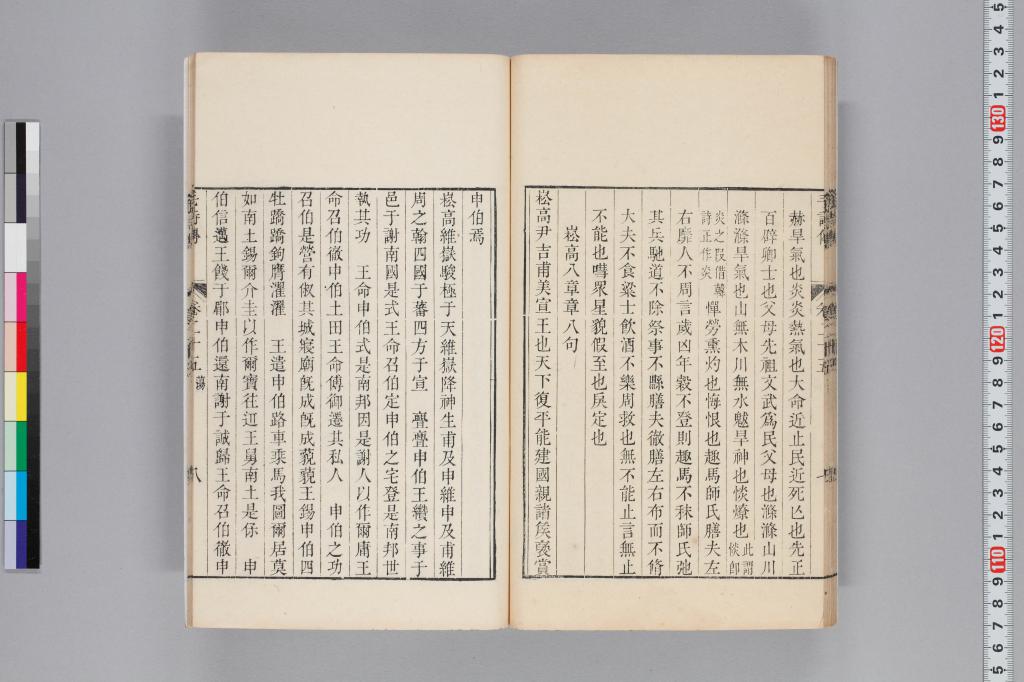 赫旱氣也炎炎熱氣也大命近止民近死亾也先正
百辟卿士也父母先祖文武爲民父母也滌滌山川
滌滌旱氣也山無木川無水魃旱神也惔燎也此謂惔卽
炎之叚借爇詩正作炎憚勞熏灼也悔恨也趣馬師氏膳夫左
右靡人不周言歲凶年穀不登則趣馬不秣師氏弛
其兵馳道不除祭事不縣膳夫徹膳左右布而不脩
大夫不食粱士飲酒不樂周救也無不能止言無止
不能也嘒衆星貌假至也戾定也
崧高八章章八句
崧高尹吉甫美宣王也天下復平能建國親諸矦襃賞
申伯焉
崧高維嶽駿極于天維嶽降神生甫及申維申及甫維
周之翰四國于蕃四方于宣　亹亹申伯王纘之事于
邑于謝南國是式王命召伯定申伯之宅登是南邦世
執其功　王命申伯式是南邦因是謝人以作爾庸王
命召伯徹申伯土田王命傅御遷其私人　申伯之功
召伯是營有俶其城寢廟旣成旣成藐藐王錫申伯四
牡蹻蹻鉤膺濯濯　王遣申伯路車乘馬我圖爾居莫
如南土錫爾介圭以作爾寶往𨒋王舅南土是保　申
伯信邁王餞于郿申伯還南謝于誠歸王命召伯徹申
卷二十五
蕩
八